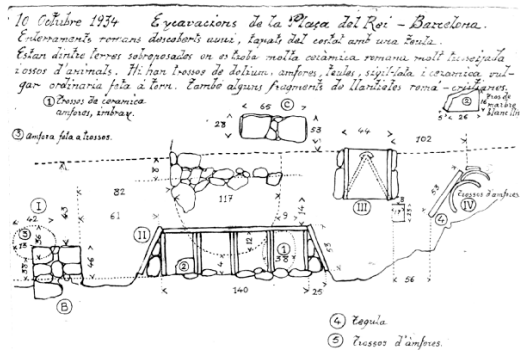 10 Octubre 1934 Excavacions de la Plaça del Rei - Barcelona.
Enterraments romans descoberts avui, tapats del costat amb una teula.
Estan dintre terres sobreposades on es troba molta ceràmica romana molt
i ossos d'animals. Hi han trossos de dolium, àmfores, teules, sigil·lata i ceràmica vul-
gar ordinaria feta a torn. També alguns fragments de llànties romà-cristianes.
① Trossos de ceràmica
àmfores, imbrex.
③ Àmfora feta a trossos.
⑤ Tros de
marbre
blanc
16
5 26
65 C
28 53
44
102
82
61
117
9
14
I
42
43
③
36
13
38
46
B
II
②
4
12
①
58
53
140
25
III
8
17
53
IV
④
Trossos d'àmfores
56
④ Tegula
⑤ Trossos d'àmfores.